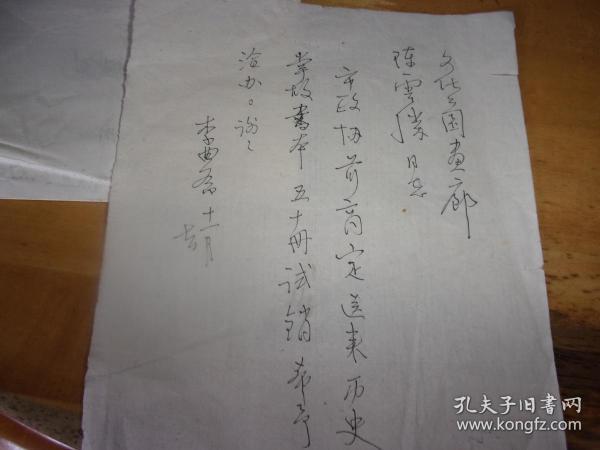 文化公园画廊
陈云 同志
市政协前商定送来历史
掌故书本五十册试销希予
洽办。谢谢
李曲斋 十一月
孔夫子旧书网
www.kongfz.com